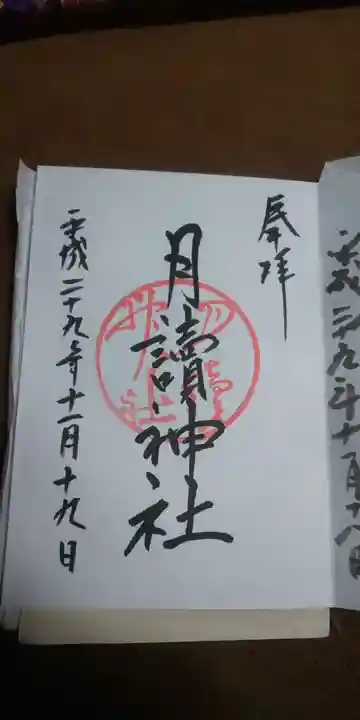 奉拝
月讀神社
平成二十九年十一月十九日
平成二十九年十一月十八日